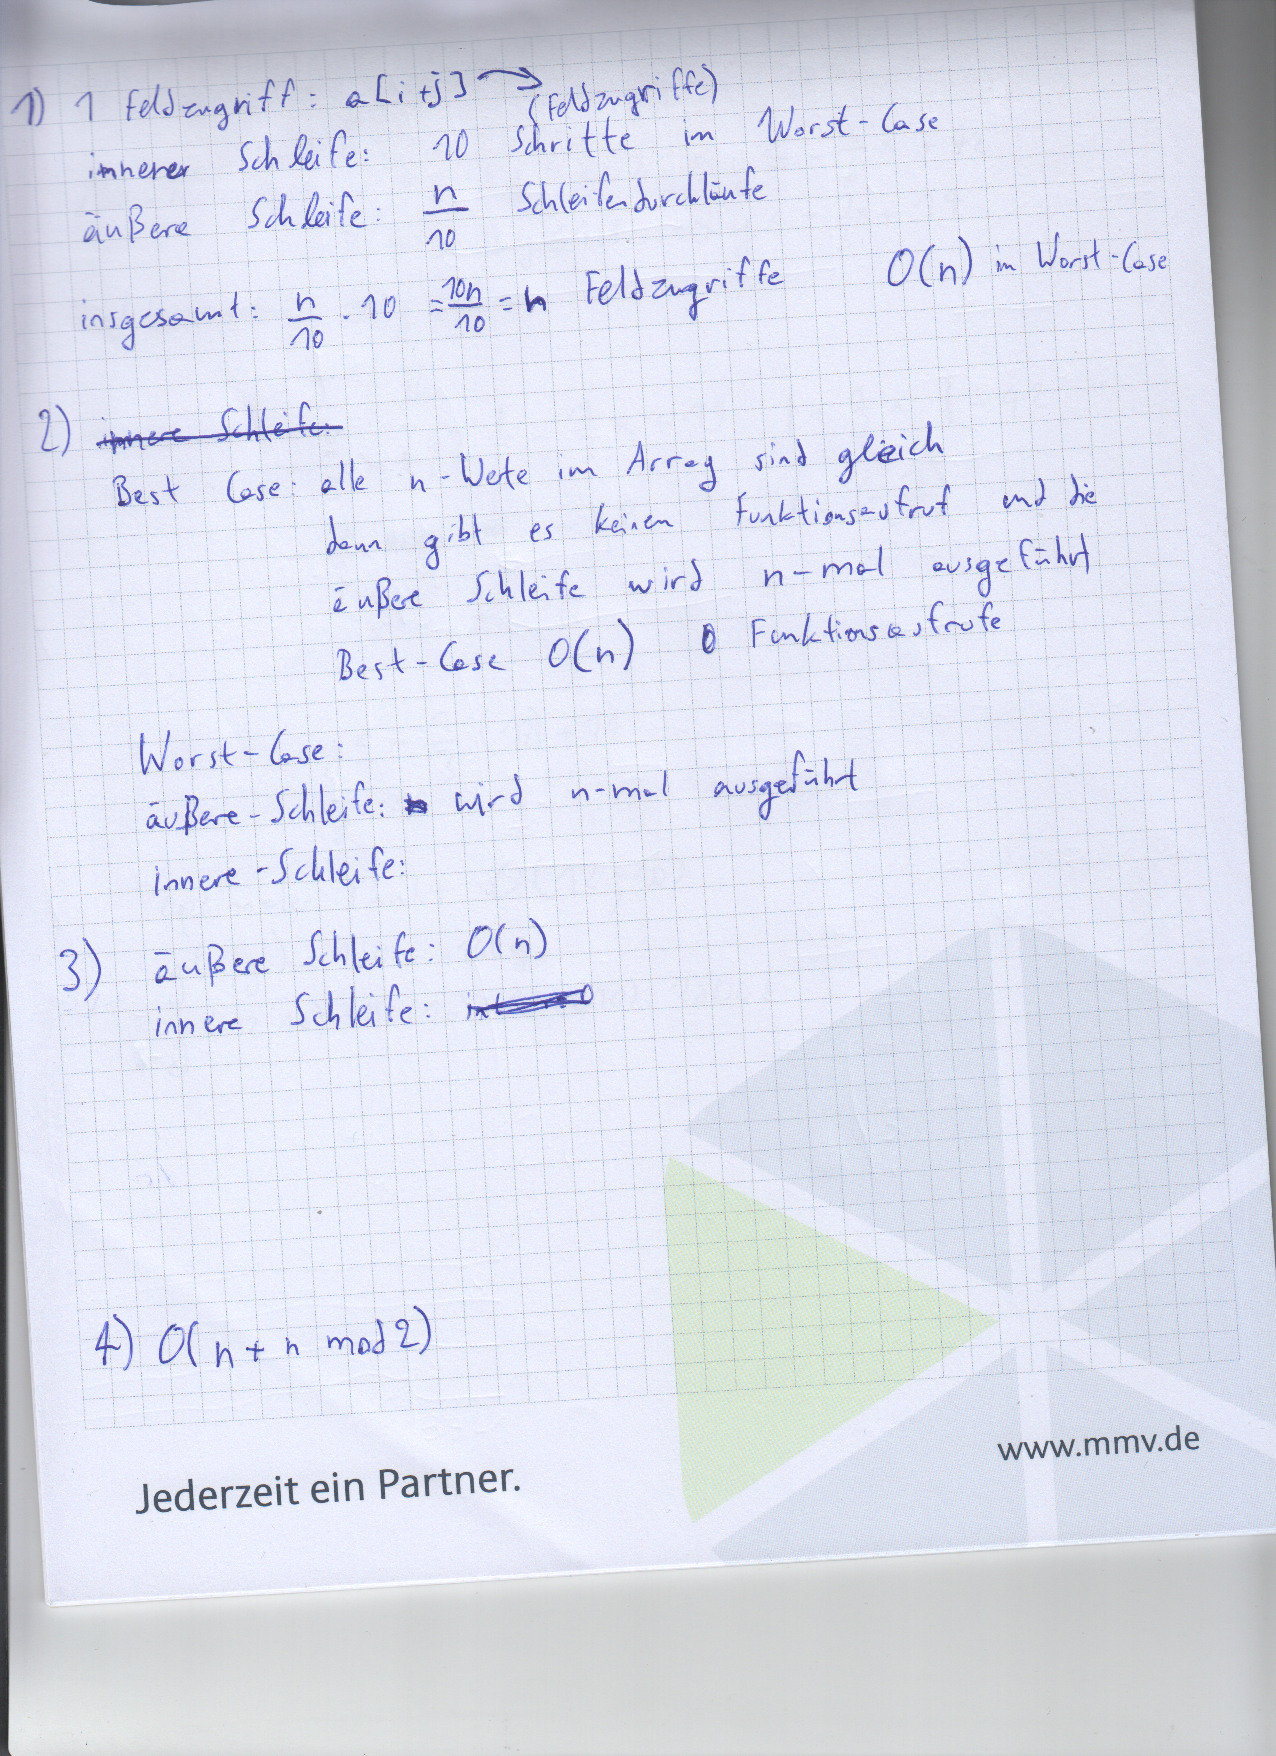 1) 1 Feldzugriff: a[i+j] → (Feldzugriffe)
innerer Schleife: 10 Schritte im Worst-Case
äußere Schleife: n/10 Schleifendurchläufe
insgesamt: n/10 · 10 = 10n/10 = n Feldzugriffe O(n) im Worst-Case
2) innere Schleife:
Best Case: alle n-Werte im Array sind gleich
dann gibt es keinen Funktionsaufruf und die
äußere Schleife wird n-mal ausgeführt
Best-Case O(n) 0 Funktionsaufrufe
Worst-Case:
äußere-Schleife: wird n-mal ausgeführt
innere-Schleife:
3) äußere Schleife: O(n)
innere Schleife:
4) O(n + n mod 2)
www.mmv.de
Jederzeit ein Partner.